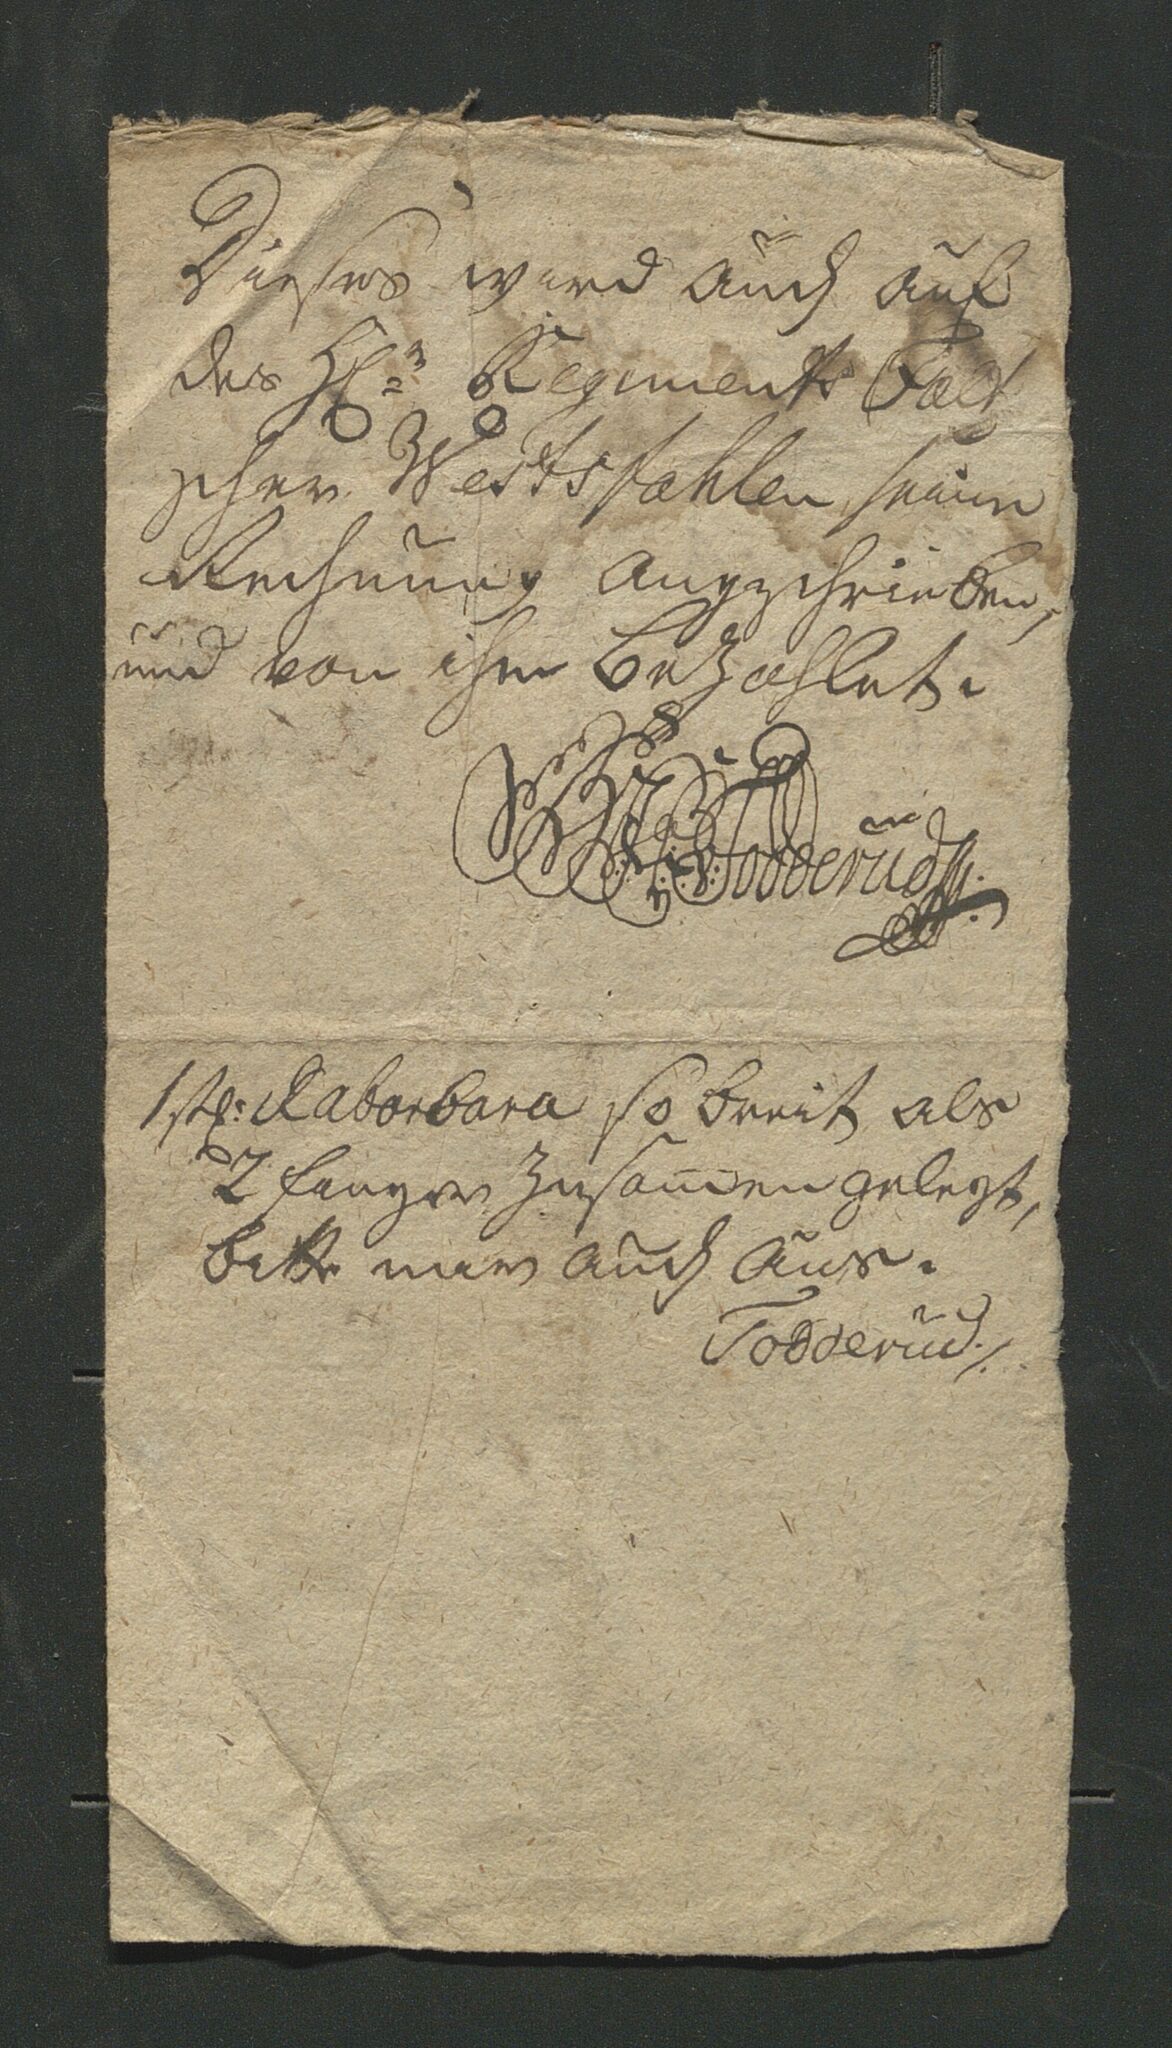 Dieses wird auch auf
des Hr. Regiments Felt
scher Westfahlen seine
Rechnung angeschrieben,
und von ihm bezahlet.
Todderud
1 stk: Rabarbara so breit als
2 finger zusammen gelegt,
bitte mir auch aus.
Todderud.